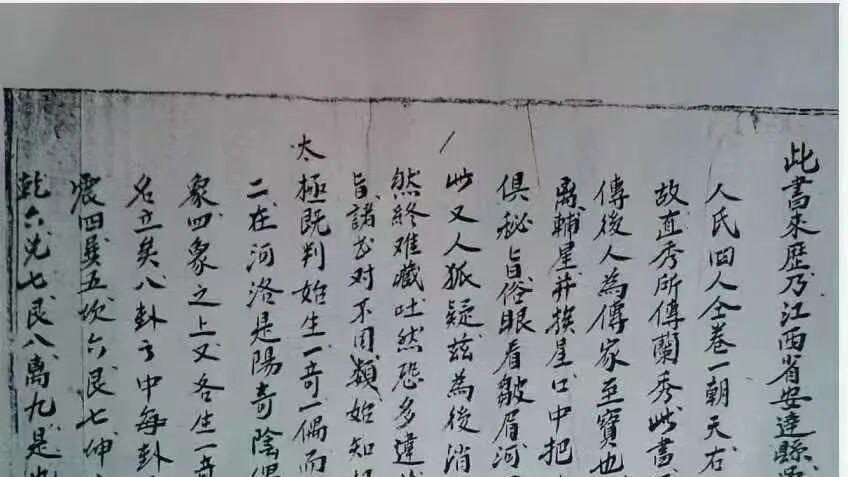 此書來歷乃江西省安遠縣
人民四人仝卷一朝天右
故直秀所傳蘭秀此書
傳後人為傳家至寶也
禹輔星并挨星口中把
俱秘旨俗眼看皺眉河
此又人狐疑兹為後消
然終难藏吐然恐多違
旨諸书对不同類始知
太極既判始生一奇一偶而
二在河洛是陽奇陰偶
象四象之上又各生一奇
名立矣八卦之中每卦
震四巽五坎六艮七坤
乾六兑七艮八离九是